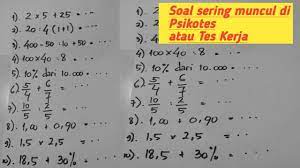 Soal sering muncul di
Psikotes
atau Tes Kerja
1). 2 × 5 + 25 = ...
2). 20 · 4 (1+1) = ...
3). 400 - 50 · 10 + 50 = ...
4). 100 × 40 · 8 = ...
5). 10% dari 10.000 = ...
6). 5/4 + 6/7 = ...
7). 10/5 2/5 = ...
8). 1,00 + 0,90 = ...
9). 1,5 × 2,5 = ...
10). 18,5 + 30% = ...
1). 2 ×
2). 20 ·
3). 400 -
4). 100 × 40 · 8 = ...
5). 10% dari 10.000 = ...
6). 5/4 + 6/7 = ...
7). 10/5 2/5 = ...
8). 1,00 + 0,90 = ...
9). 1,5 × 2,5 = ...
10). 18,5 + 30% = ...